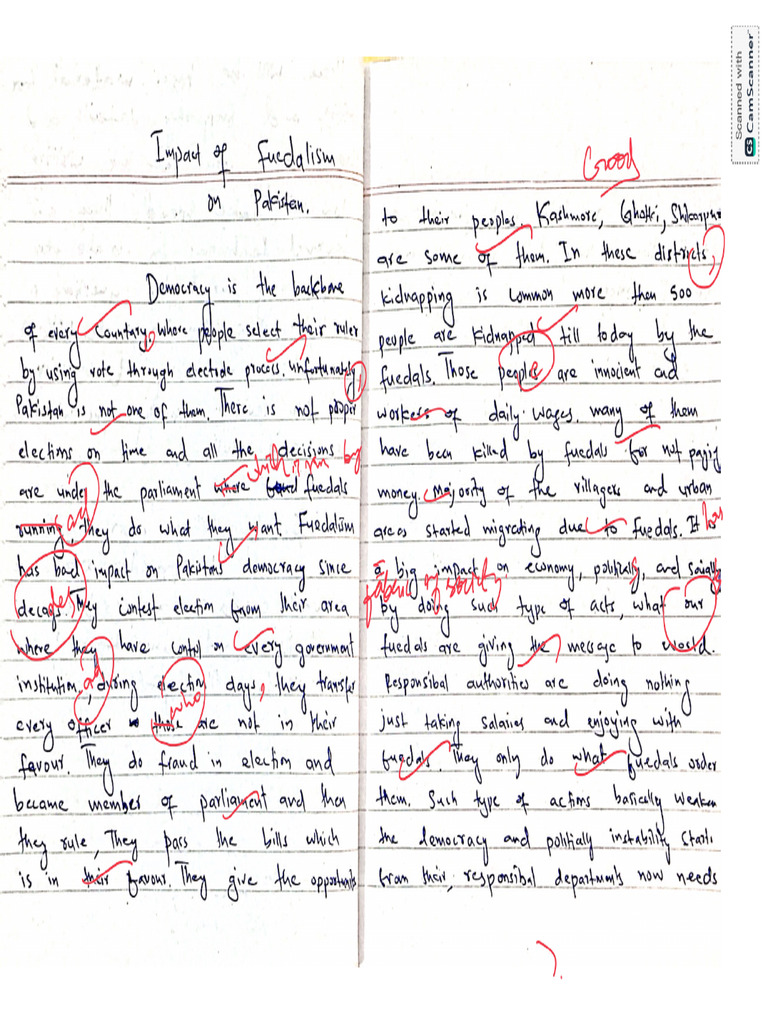 Impact of Fuedalism
on Pakistan.
Democracy is the backbone
of every countary, where people select their ruler
by using vote through electride process. unfortunately,
Pakistan is not one of them. There is not proper
elections on time and all the decisions
are under the parliament where fuedals
running, they do what they want Fuedalism
has bad impact on Pakistans democracy since
decades. They contest election from their area
where they have control on every government
institution, and during election days, they transfer
every officer who are not in their
favour. They do fraud in election and
became member of parliament and then
they rule, They pass the bills which
is in their favour. They give the opportunite
Good
to their peoples. Kashmore, Ghotki, Shikarpur
are some of them. In these districts,
kidnapping is common more then 500
people are kidnapped till today by the
fuedals. Those peoples are innocient and
workers of daily wages. many of them
have been killed by fuedals for not paying
money. Majority of the villagers and urban
areas started migrating due to fuedals. It has
a big impact on economy, politially, and socially
fabric of society
by doing such type of acts, what our
fuedals are giving the message to world.
Responsibal authorities are doing nothing
just taking salaries and enjoying with
fuedals. They only do what fuedals order
them. Such type of actions basically weaken
the democracy and politially instability start.
from their, responsibal departments now needs
Scanned with
CS CamScanner